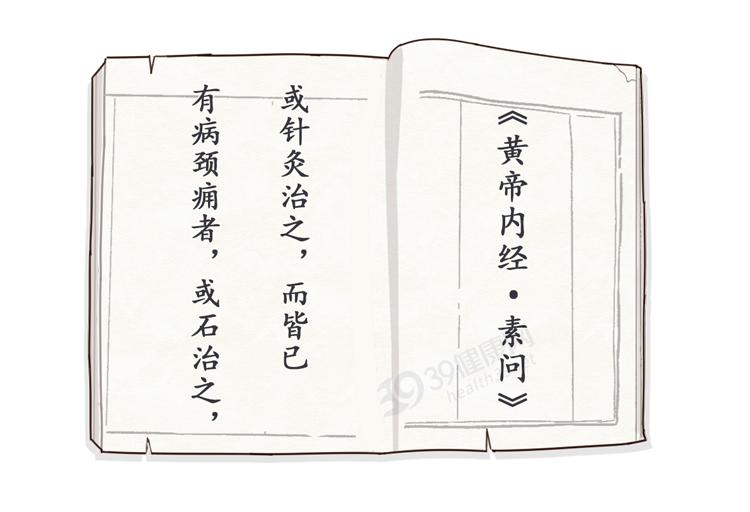 有病颈痈者，或石治之，
或针灸治之，而皆已
《黄帝内经·素问》
39健康网